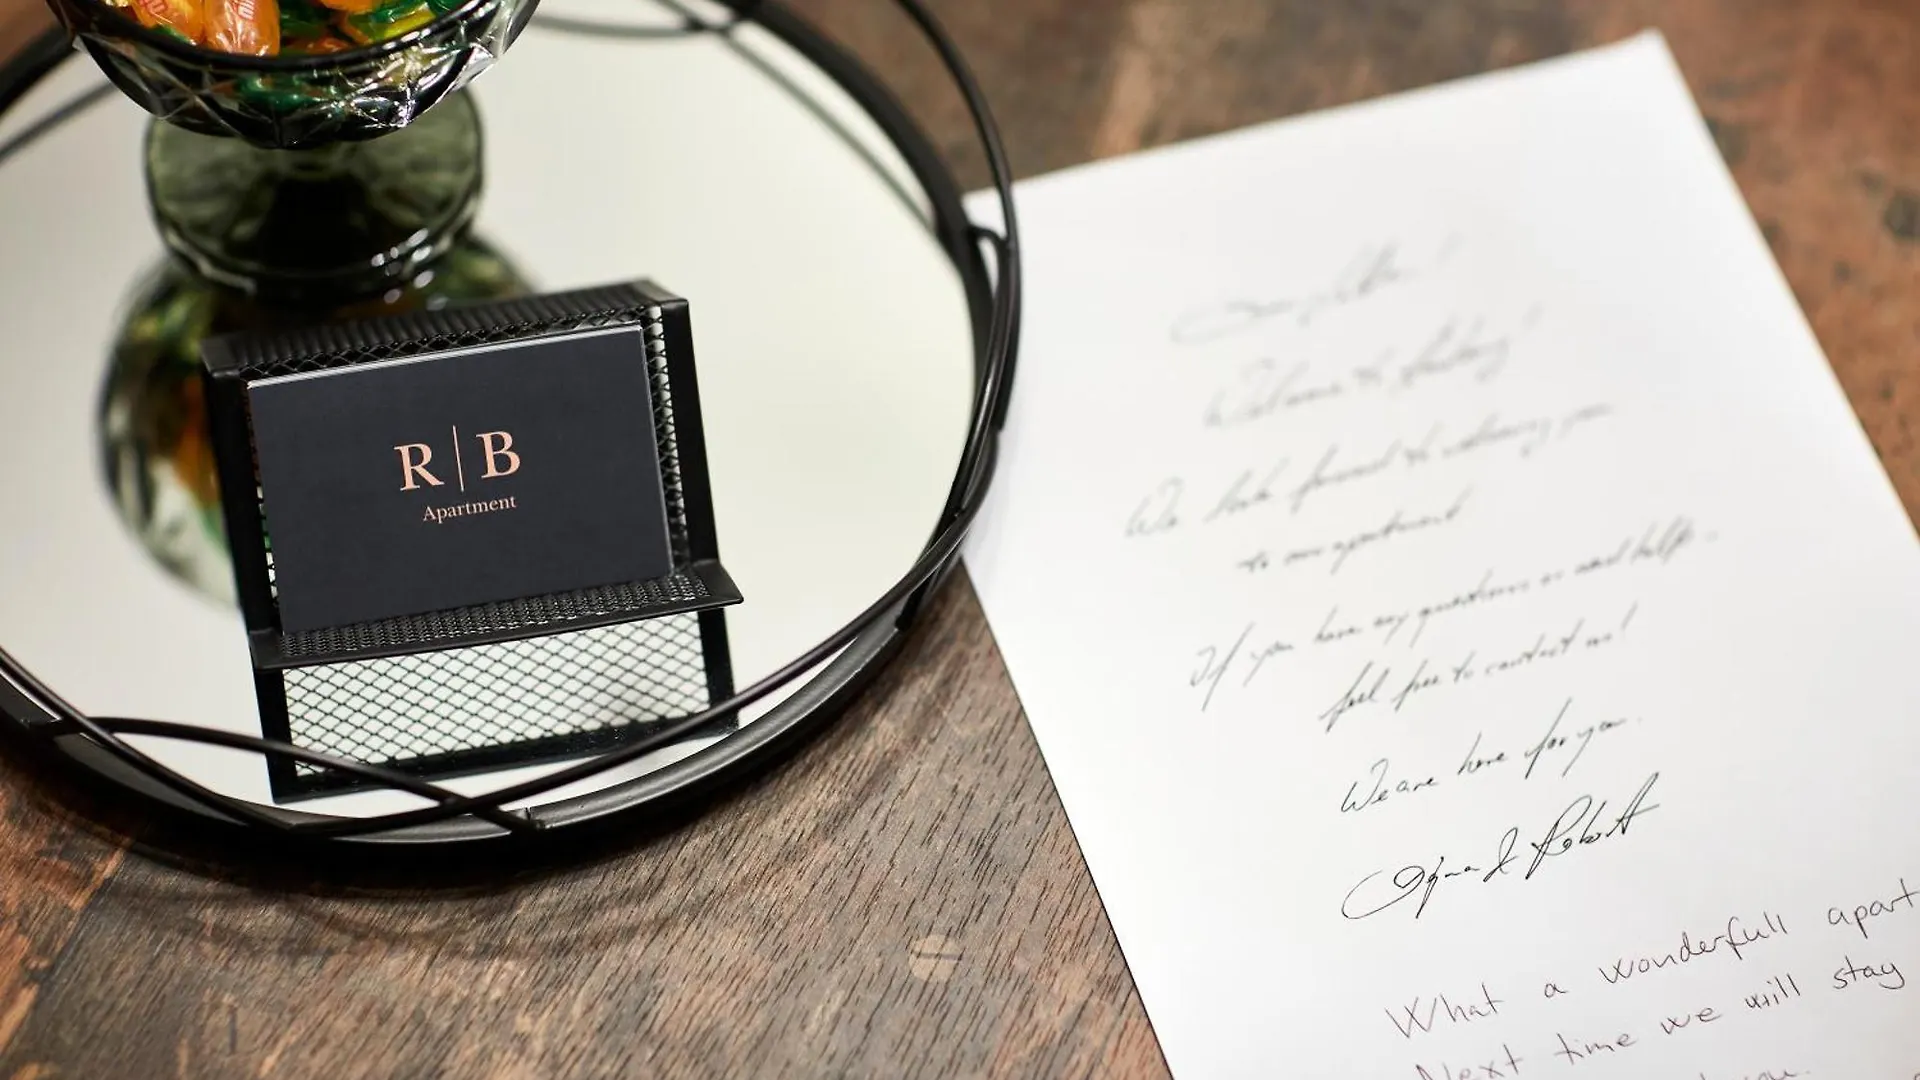 R|B
Apartment
We look forward to welcoming you
to our apartment
If you have any questions or need help
feel free to contact us!
We are here for you.
& Robert
What a wonderfull apart
Next time we will stay